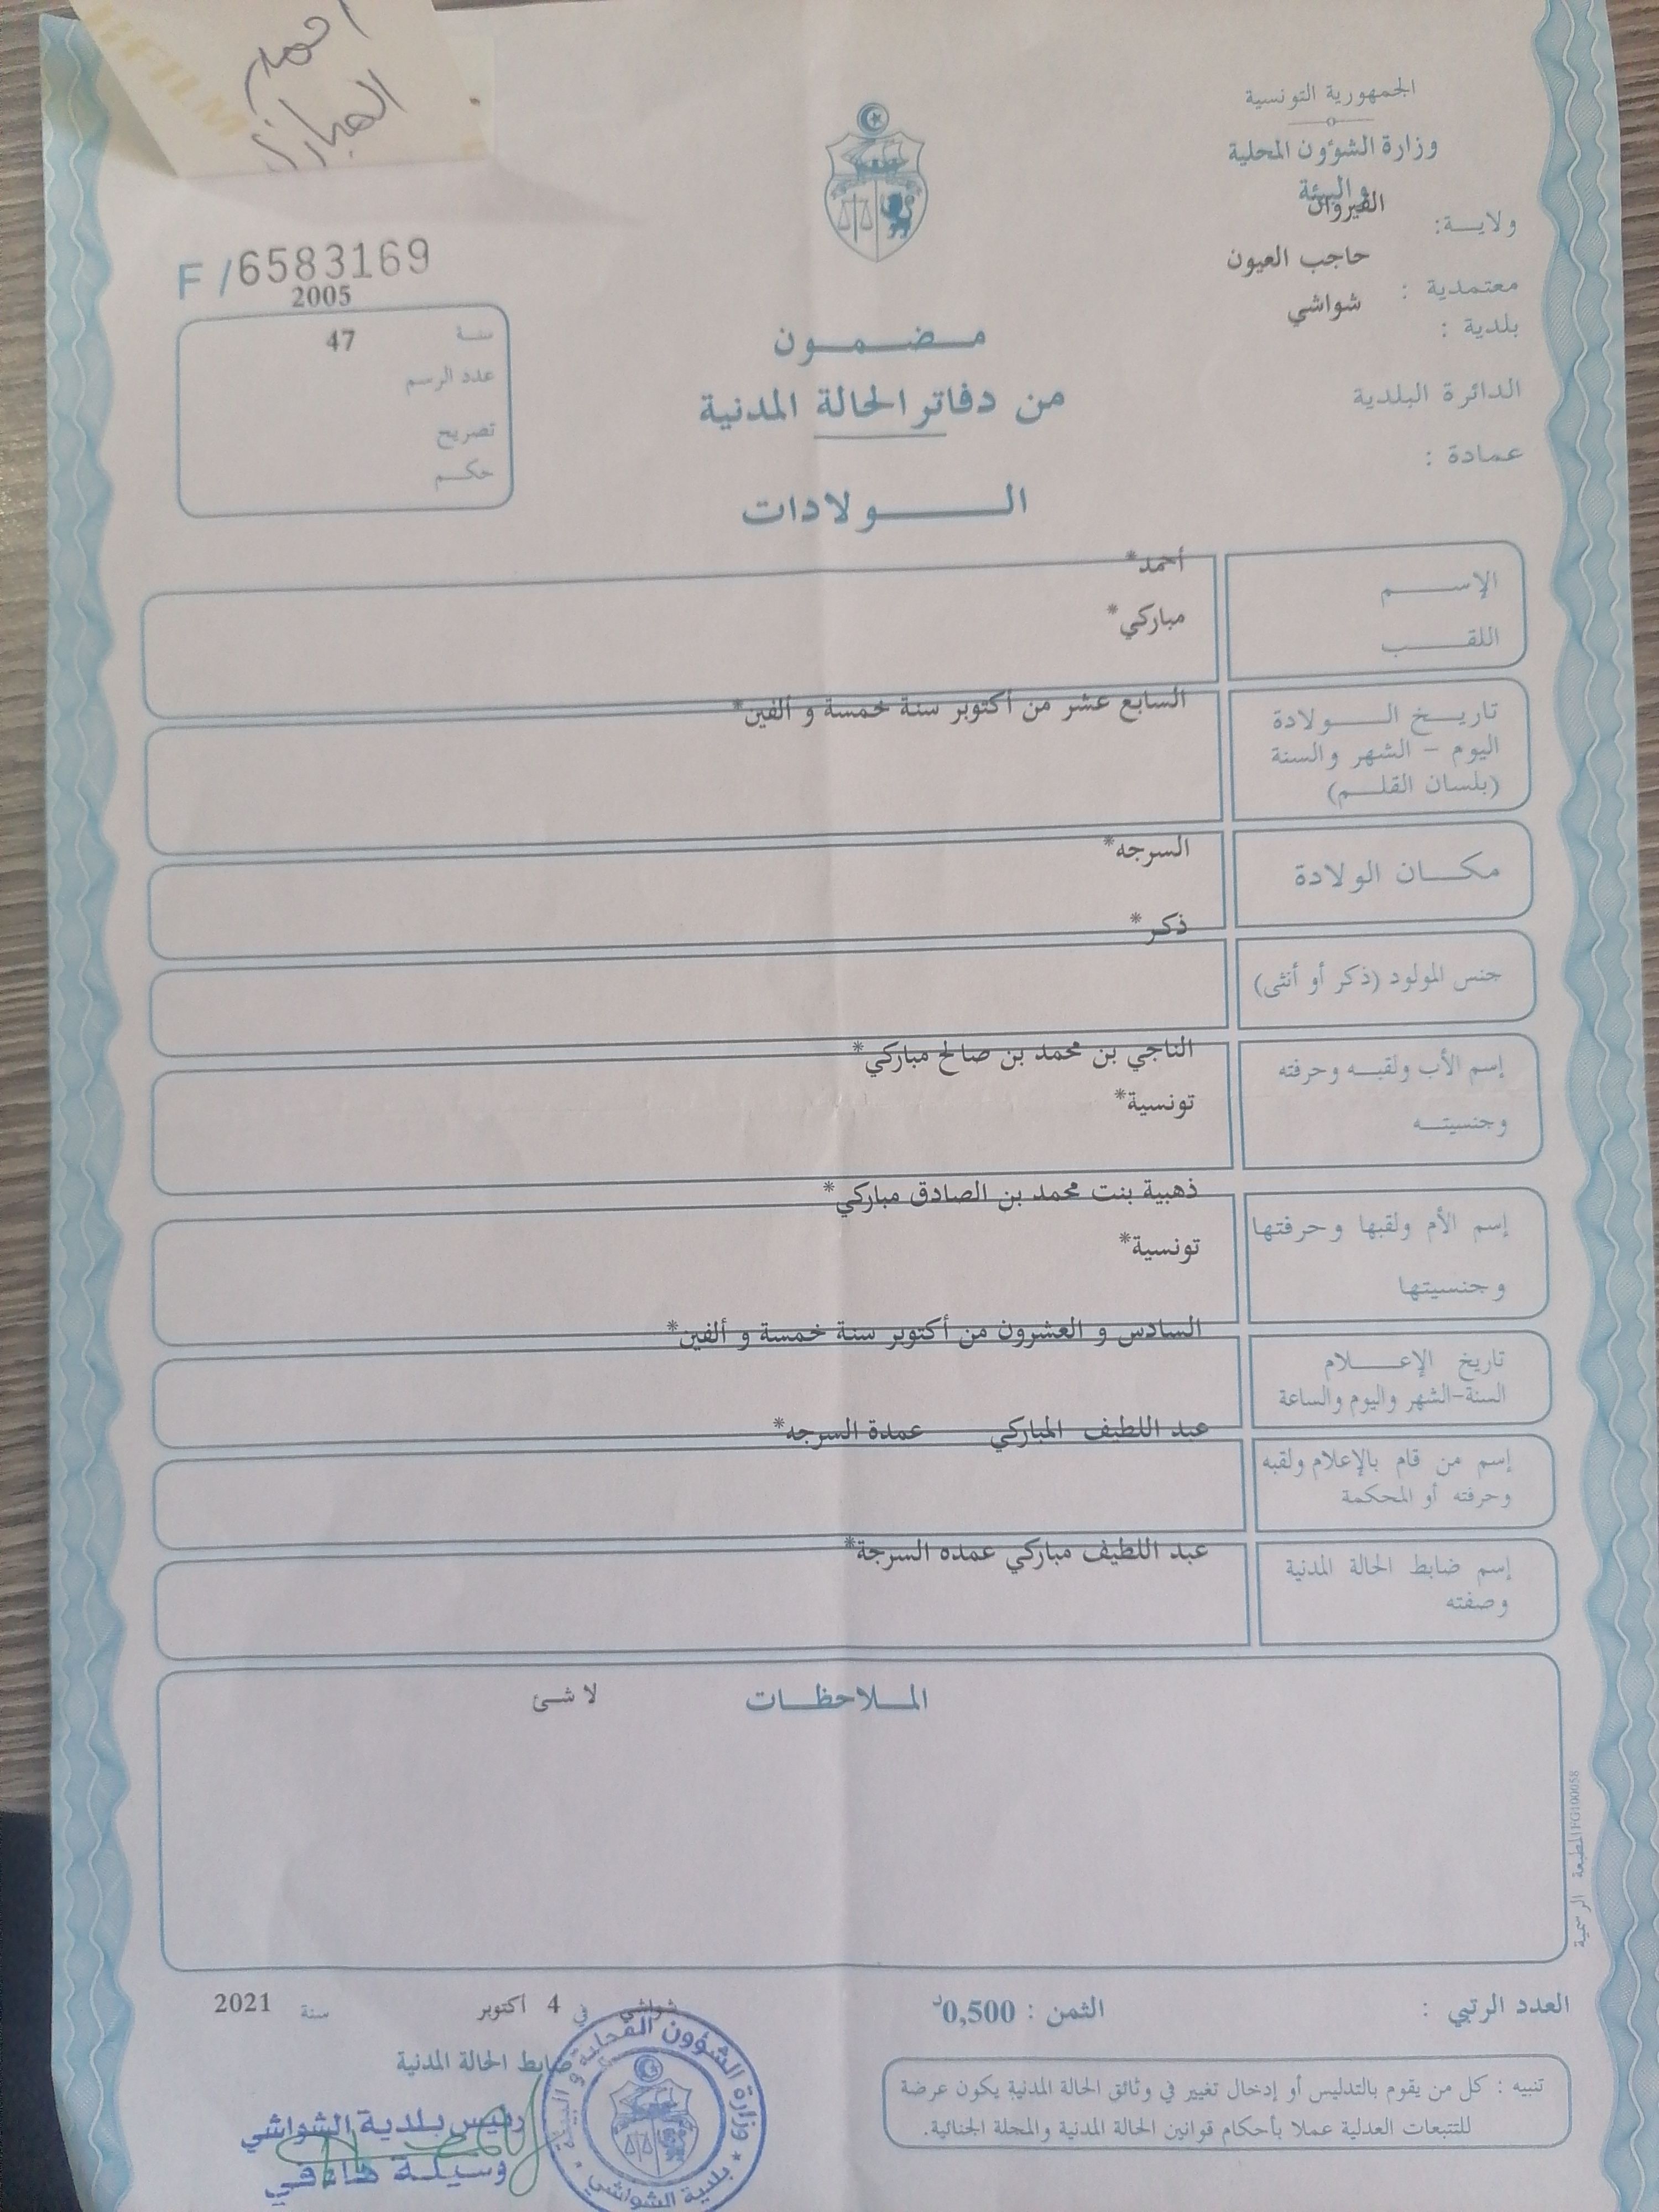 احمد
الجمهورية التونسية
وزارة الشؤون المحلية
والبيئة
ولايـــة: القيروان
معتمدية : حاجب العيون
بلدية : شواشي
الدائرة البلدية
عمادة :
F / 6583169
سنة 2005
عدد الرسم 47
تصريح
حكم
مـضـمـون
من دفاتر الحالة المدنية
الـــولادات
الإســـم أحمد*
اللقـــب مباركي*
تاريـــخ الـــولادة السابع عشر من أكتوبر سنة خمسة و ألفين*
اليوم – الشهر والسنة
(بلسان القلـــم)
مكـــان الولادة السرجه*
جنس المولود (ذكر أو أنثى) ذكر*
إسم الأب ولقبـــه وحرفته الناجي بن محمد بن صالح مباركي*
وجنسيتـــه تونسية*
إسم الأم ولقبها وحرفتها ذهبية بنت محمد بن الصادق مباركي*
وجنسيتها تونسية*
تاريخ الإعـــلام السادس و العشرون من أكتوبر سنة خمسة و ألفين*
السنة-الشهر واليوم والساعة
إسم من قام بالإعلام ولقبه عبد اللطيف المباركي عمدة السرجه*
وحرفته أو المحكمة
إسم ضابط الحالة المدنية عبد اللطيف مباركي عمده السرجة*
وصفته
المـــلاحظـــات لا شئ
المطبعة الرسمية FG100058
العدد الرتبي : الثمن : 0,500د
شواشي في 4 أكتوبر سنة 2021
ضابط الحالة المدنية
تنبيه : كل من يقوم بالتدليس أو إدخال تغيير في وثائق الحالة المدنية يكون عرضة
للتتبعات العدلية عملا بأحكام قوانين الحالة المدنية والمجلة الجنائية.
رئيس بلدية الشواشي
وسيلة
وزارة الشؤون المحلية و البيئة
* بلدية الشواشي *